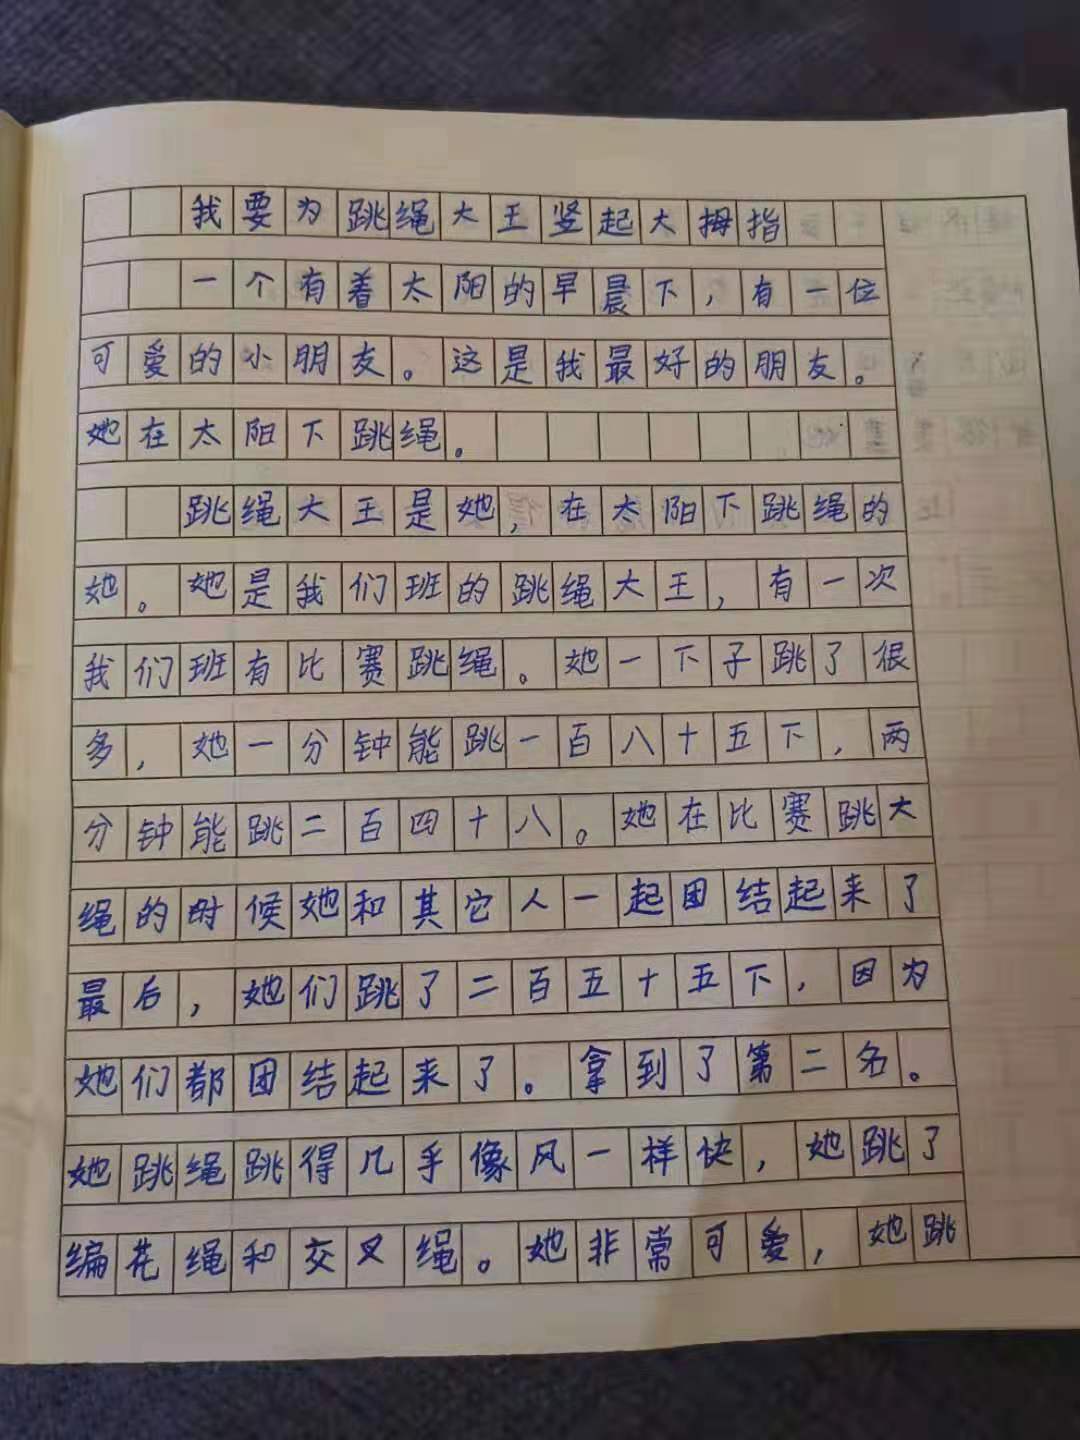 我要为跳绳大王竖起大拇指
一个有着太阳的早晨下，有一位
可爱的小朋友。这是我最好的朋友。
她在太阳下跳绳。
跳绳大王是她，在太阳下跳绳的
她。她是我们班的跳绳大王，有一次
我们班有比赛跳绳。她一下子跳了很
多，她一分钟能跳一百八十五下，两
分钟能跳二百四十八。她在比赛跳大
绳的时候她和其它人一起团结起来了
最后，她们跳了二百五十五下，因为
她们都团结起来了。拿到了第二名。
她跳绳跳得几乎像风一样快，她跳了
编花绳和交叉绳。她非常可爱，她跳